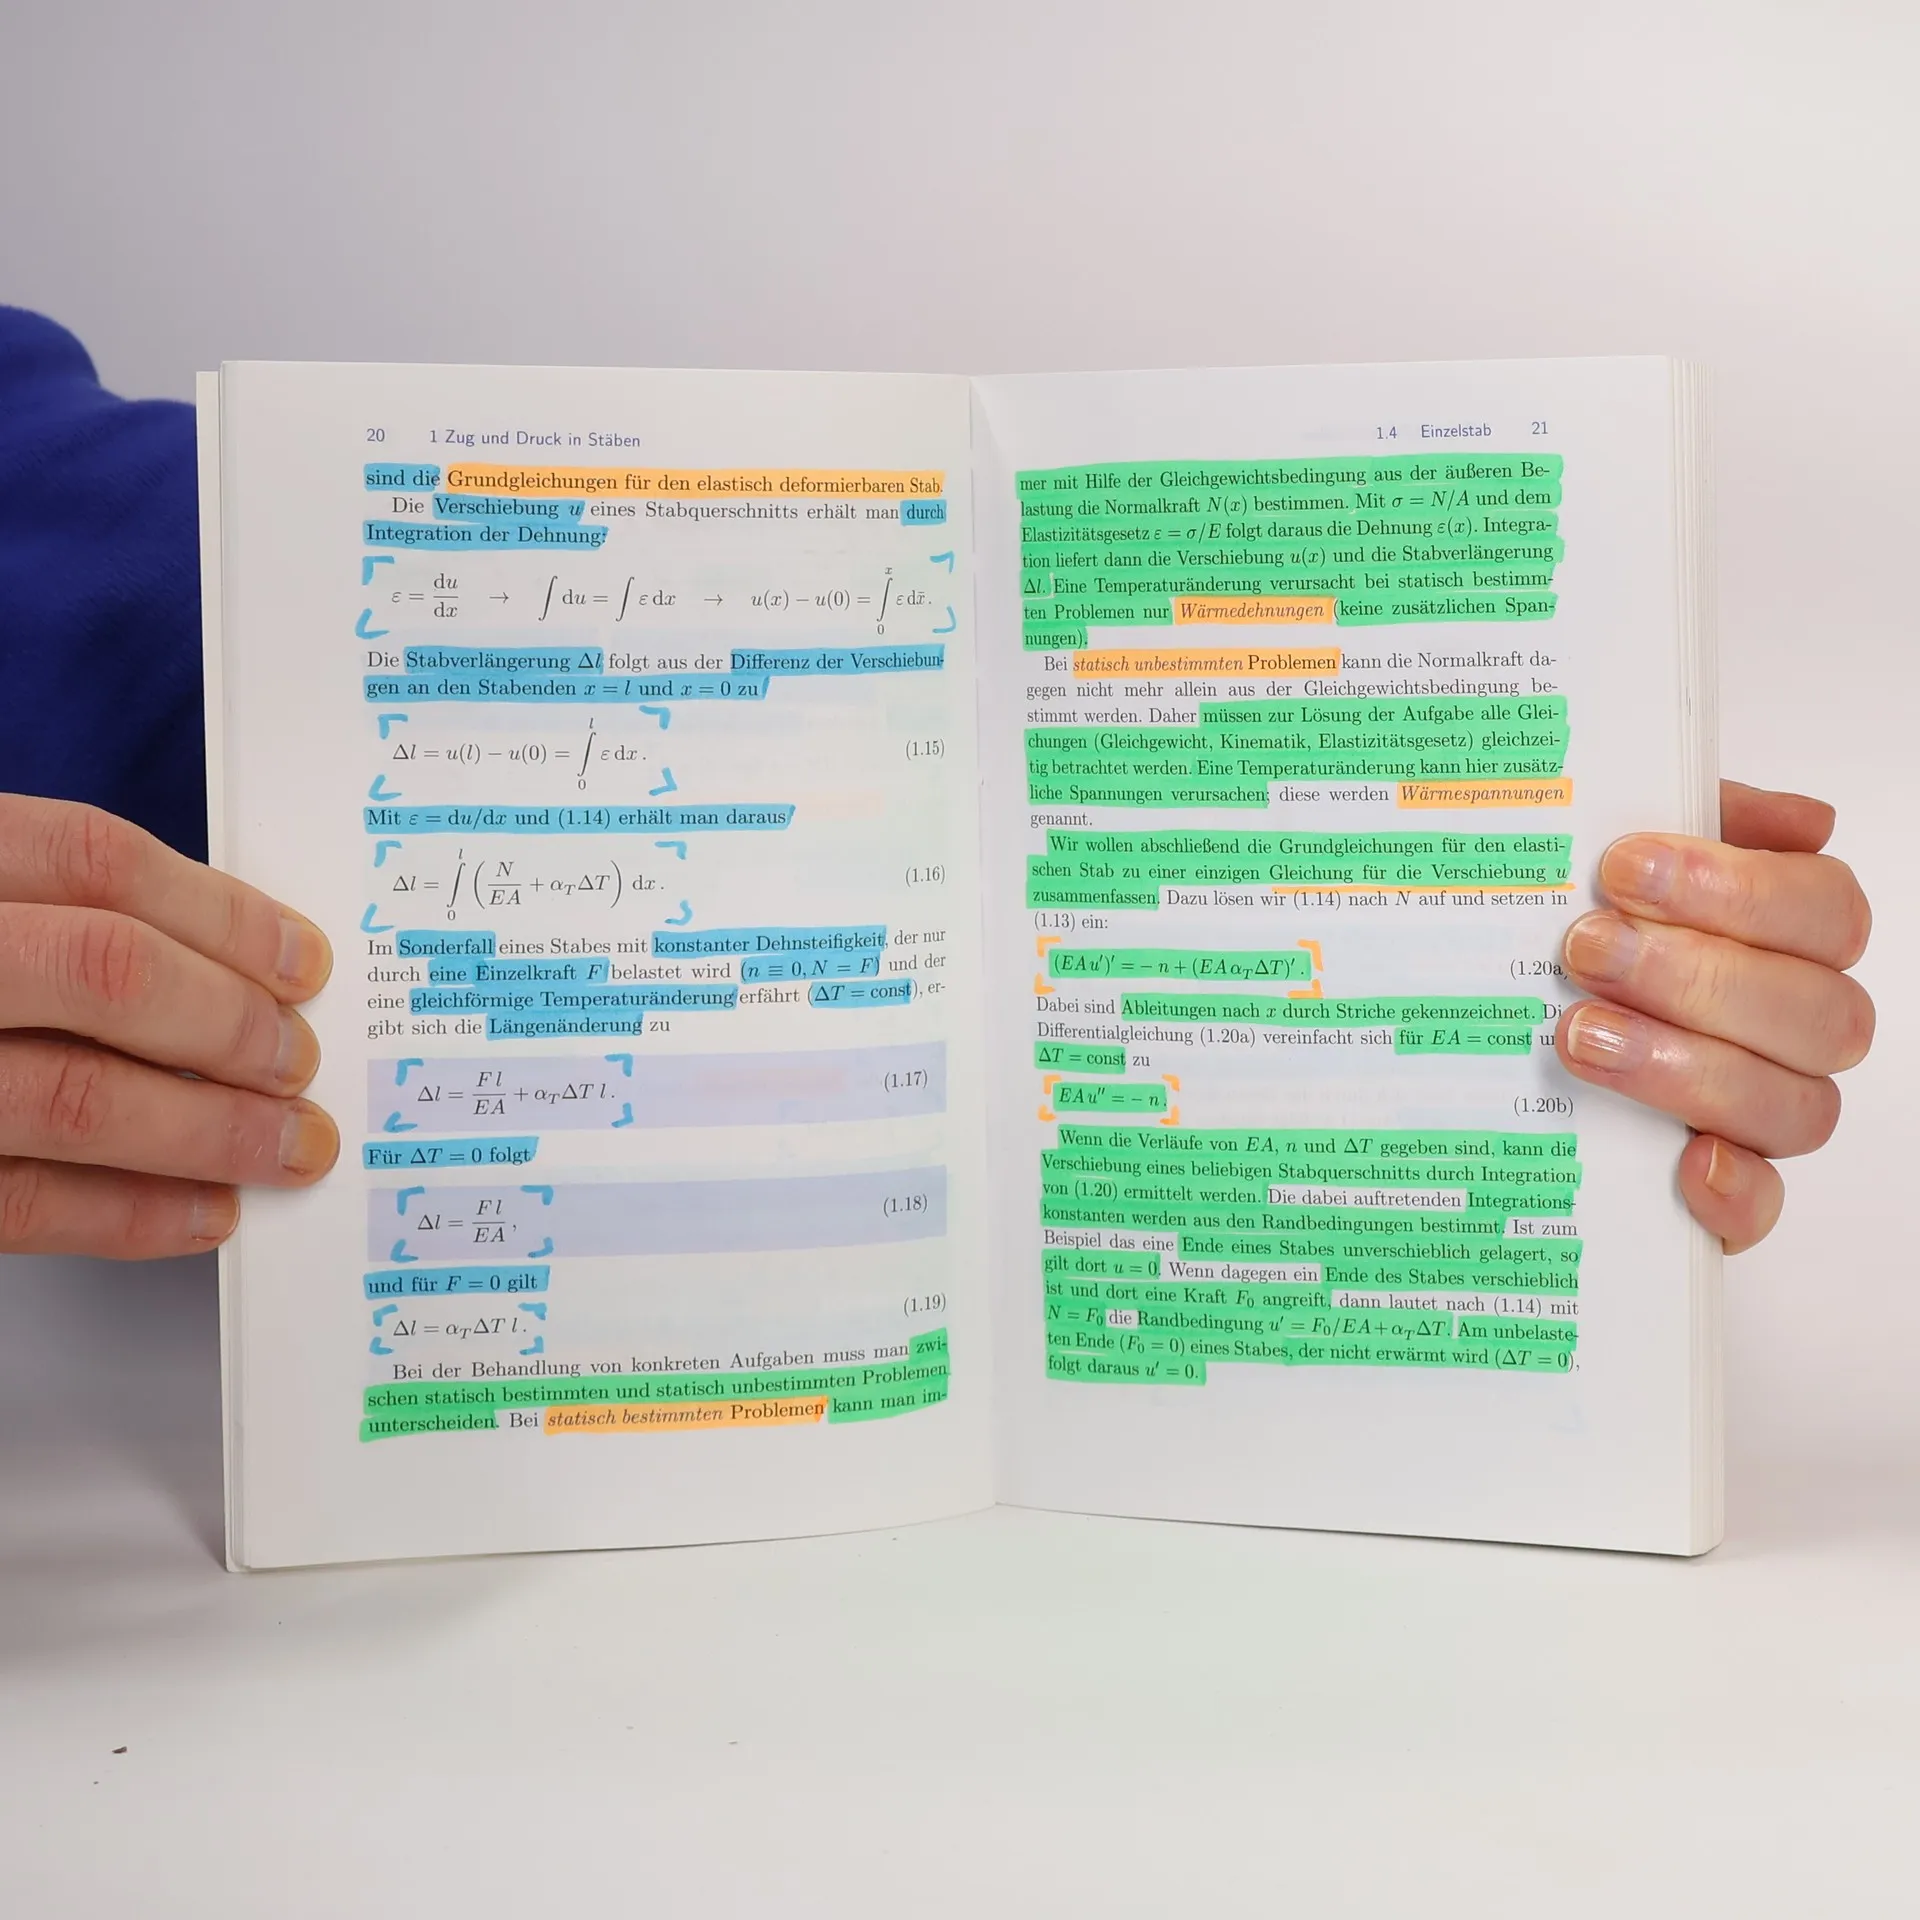 20 1 Zug und Druck in Stäben
sind die Grundgleichungen für den elastisch deformierbaren Stab.
Die Verschiebung u eines Stabquerschnitts erhält man durch
Integration der Dehnung:
ε = du/dx → ∫ du = ∫ ε dx → u(x) − u(0) = ∫₀ˣ ε dx̄ .
Die Stabverlängerung Δl folgt aus der Differenz der Verschiebun-
gen an den Stabenden x = l und x = 0 zu
Δl = u(l) − u(0) = ∫₀ˡ ε dx . (1.15)
Mit ε = du/dx und (1.14) erhält man daraus
Δl = ∫₀ˡ (N/EA + α_T ΔT) dx . (1.16)
Im Sonderfall eines Stabes mit konstanter Dehnsteifigkeit, der nur
durch eine Einzelkraft F belastet wird (n ≡ 0, N = F) und der
eine gleichförmige Temperaturänderung erfährt (ΔT = const), er-
gibt sich die Längenänderung zu
Δl = F l/EA + α_T ΔT l . (1.17)
Für ΔT = 0 folgt
Δl = F l/EA , (1.18)
und für F = 0 gilt
Δl = α_T ΔT l . (1.19)
Bei der Behandlung von konkreten Aufgaben muss man zwi-
schen statisch bestimmten und statisch unbestimmten Problemen
unterscheiden. Bei statisch bestimmten Problemen kann man im-
1.4 Einzelstab 21
mer mit Hilfe der Gleichgewichtsbedingung aus der äußeren Be-
lastung die Normalkraft N(x) bestimmen. Mit σ = N/A und dem
Elastizitätsgesetz ε = σ/E folgt daraus die Dehnung ε(x). Integra-
tion liefert dann die Verschiebung u(x) und die Stabverlängerung
Δl. Eine Temperaturänderung verursacht bei statisch bestimm-
ten Problemen nur Wärmedehnungen (keine zusätzlichen Span-
nungen).
Bei statisch unbestimmten Problemen kann die Normalkraft da-
gegen nicht mehr allein aus der Gleichgewichtsbedingung be-
stimmt werden. Daher müssen zur Lösung der Aufgabe alle Glei-
chungen (Gleichgewicht, Kinematik, Elastizitätsgesetz) gleichzei-
tig betrachtet werden. Eine Temperaturänderung kann hier zusätz-
liche Spannungen verursachen; diese werden Wärmespannungen
genannt.
Wir wollen abschließend die Grundgleichungen für den elasti-
schen Stab zu einer einzigen Gleichung für die Verschiebung u
zusammenfassen. Dazu lösen wir (1.14) nach N auf und setzen in
(1.13) ein:
(EA u′)′ = − n + (EA α_T ΔT)′ . (1.20a
Dabei sind Ableitungen nach x durch Striche gekennzeichnet. Di
Differentialgleichung (1.20a) vereinfacht sich für EA = const un
ΔT = const zu
EA u″ = − n . (1.20b)
Wenn die Verläufe von EA, n und ΔT gegeben sind, kann die
Verschiebung eines beliebigen Stabquerschnitts durch Integration
von (1.20) ermittelt werden. Die dabei auftretenden Integrations-
konstanten werden aus den Randbedingungen bestimmt. Ist zum
Beispiel das eine Ende eines Stabes unverschieblich gelagert, so
gilt dort u = 0. Wenn dagegen ein Ende des Stabes verschieblich
ist und dort eine Kraft F₀ angreift, dann lautet nach (1.14) mit
N = F₀ die Randbedingung u′ = F₀/EA + α_T ΔT. Am unbelaste-
ten Ende (F₀ = 0) eines Stabes, der nicht erwärmt wird (ΔT = 0),
folgt daraus u′ = 0.